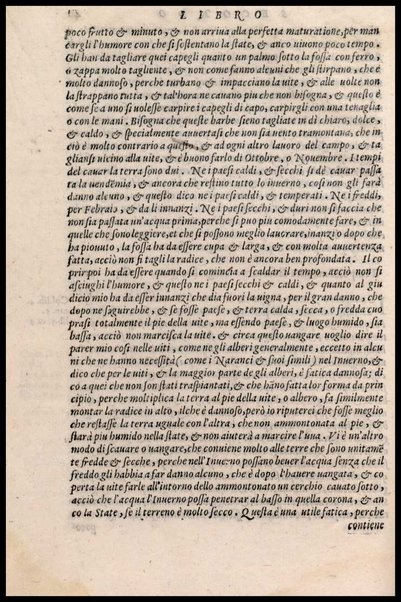 LIBRO
poco frutto & minuto, & non arriua alla perfetta maturatione, per man
cargli l'humore con che si sostentano la state, & anco viuono poco tempo.
Gli han da tagliare quei capegli quanto un palmo sotto la fossa con ferro,
o zappa molto tagliente, & non come fanno alcuni che gli stirpano, che è
molto dannoso, perche turbano & impacciano la uite, & alle uolte non la
stirpano tutta, & tal'hora ne cauano piu che non bisogna, & questo è
come se a uno si uolesse carpire i capegli di capo, carpirgli con una tenaglia
o con le mani. Bisogna che queste barbe sieno tagliate in dì chiaro, dolce,
& caldo, & specialmente auuertasi che non sia uento tramontana, che in
ciò è molto contrario a questo, & ad ogni altro lauoro del campo, & ta
gliansi uicino alla uite, & è buono farlo di Ottobre, o Nouembre. I tempi
del cauar la terra sono dui. Ne i paesi caldi, & secchi si dè cauar passa
ta la uendèmia, & ancora che restino tutto lo inuerno, così non gli farà
danno alcuno, & questo dico ne i paesi caldi, & temperati. Ne i freddi,
per Febraio, & da lì innanzi. Ne i paesi secchi, & duri non si faccia che
non sia passata un'acqua prima, perche si può piu comodamente fare, & in
quelle che sono leggiere, et che si possono meglio lauorare, inanzi o dopo che
ha piouuto, la fossa ha da essere cupa & larga, & con molta auuertenza
fatta, acciò non si tagli la radice, che non è ancora ben profondata. Il co
prir poi ha da essere quando si comincia a scaldar il tempo, acciò non si
asciughi l'humore, & questo ne i paesi secchi & caldi, & quanto al giu
dicio mio ha da esser innanzi che dia fuori la uigna, per il gran danno, che
dopo ne seguirebbe, & se fosse paese, & terra calda, secca, o fredda cuo
prasi totalmente il pie della uite, ma essendo paese, & luogo humido, sia
bassa, acciò non marcisca la uite, & circa questo uangare uoglio dire il
parer mio così nelle uiti, come ne gli alberi generalmente, eccetto in alcu
ni che ne hanno necessità (come i Naranci & suoi simili) nel Inuerno, &
dico che per le uiti, & la maggior parte de gli alberi, è fatica dannosa; di
co a quei che non son stati traspiantati, & che hāno fatta lor forma da prin
cipio, perche moltiplica la terra al pie della uite, o albero, fa similmente
montar la radice in alto, ilche è dannoso, però io riputerei che fosse meglio
che restasse la terra uguale con l'altra, che non ammontonata al pie, &
starà piu humido nella state, & non aiuterà a marcire l'uua. Vi è un'altro
modo di scauare o uangare, che conuiene molto alle terre che sono unitamē
te fredde & secche, perche nell'Inuerno possano beuer l'acqua senza che il
freddo gli habbia a far danno alcuno, che è dopo l'hauere uangata, & co
perta la uite farle all'intorno dello ammontonato un cerchio cauato sotto,
acciò che l'acqua l'Inuerno possa penetrar al basso in quella corona, & an
co la State, se il terreno è molto secco. Questa è una utile fatica, perche
contiene